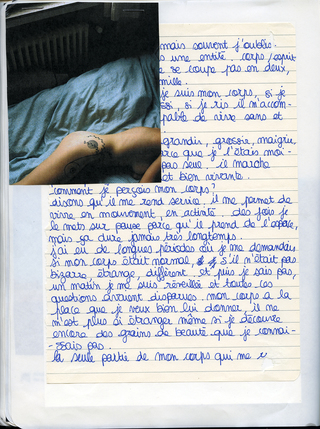 mais souvent j'oublie.
une entité. corps/esprit
se coupe pas en deux,
mille.
je suis mon corps, si je
si, si je ris il m'accom-
pable de vivre sans et
grandis, grossie, maigrie,
rce que je l'étais moi-
pas seul. il marche
et bien vivante.
comment je perçois mon corps?
disons qu'il me rend service. il me permet de
vivre en mouvement, en activité. des fois je
le mets sur pause parce qu'il prend de l'espace,
mais ça dure jamais très longtemps.
j'ai eu de longues périodes où je me demandais
si mon corps était normal, s'il n'était pas
bizarre, étrange, différent. et puis je sais pas,
un matin je me suis réveillée et toutes ces
questions avaient disparues. mon corps a la
place que je veux bien lui donner, il ne
m'est plus si étranger même si je découvre
encore des grains de beauté que je connai-
-ssais pas.
la seule partie de mon corps qui me